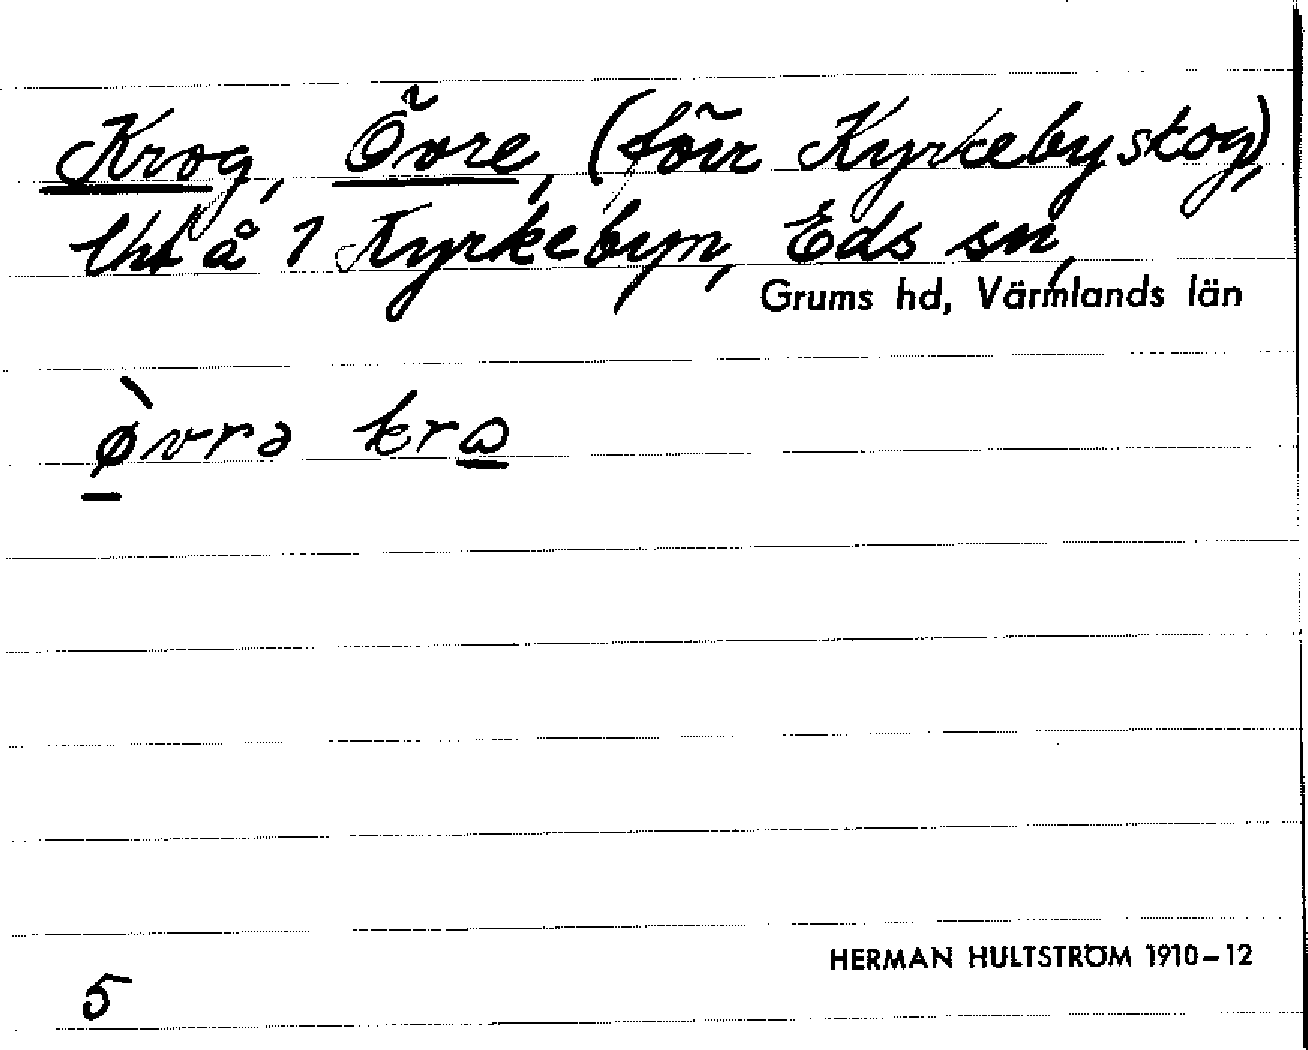 Krog, Övre, (förr Kyrkebyskog),
lht å 1 Kyrkebyn, Eds sn,
Grums hd, Värmlands län
ø̀vrə krɷ
HERMAN HULTSTRÖM 1910–12
5